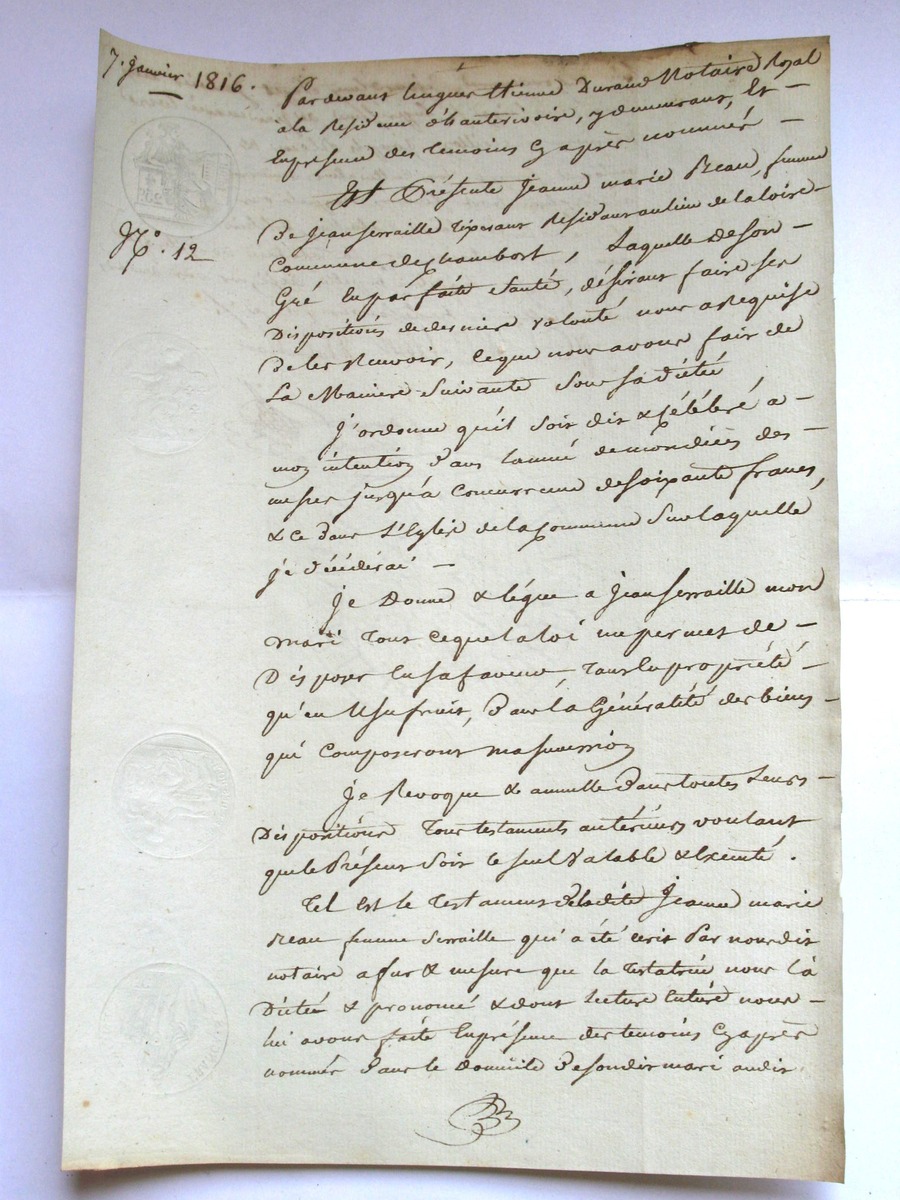 7. Janvier 1816.
Pardevant hugues Etienne Durand Notaire Royal
à la Residence d'hauterivoire, y demeurant, Et —
En présence des temoins cy après nommés —
Est Présente Jeanne marie Reau, femme
N.º 12
De Jean Serraille tixerant Residant au lieu de la loire —
Commune de chambost, Laquelle de son —
Gré En parfaite Santé, désirant faire ses
Dispositions de derniere volonté nous a Requise
De les Recevoir, Ce que nous avons fait de
La Maniere Suivante Sous sa dictée
J'ordonne qu'il Soit dit & Célébré a —
mon intention Dans l'année de mon décès des —
messes jusqu'a Concurrence de soixante francs,
& ce Dans L'Eglise de la Commune Sur laquelle
je décéderai —
Je Donne & légue a Jean Serraille mon
mari Tout ce que la loi me permet de —
Disposer En sa faveur, Tant En propriété —
qu'en Usufruit, Dans la Généralité des biens —
qui Composeront ma succession
Je Revoque & annulle Dans toutes Leurs —
Dispositions Tous testaments antérieurs voulant
que le Présent Soit le seul Valable & Executé.
Tel Est le Testament de ladite Jeanne marie
Reau femme Serraille qui a été ecrit Par nous dit
notaire a fur & mesure que la Testatrice nous l'à
Dictée & prononcé & dont lecture Entière nous —
lui avons faite En présence des temoins Cy après
nommés Dans le Domicile De son dit mari audit